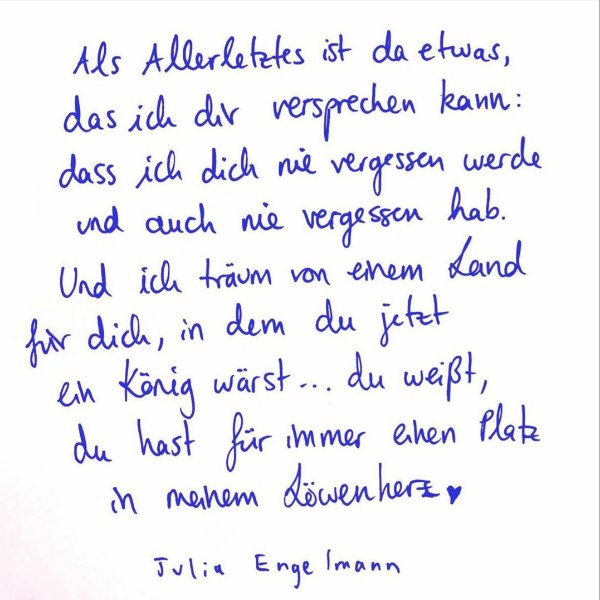 Als Allerletztes ist da etwas,
das ich dir versprechen kann:
dass ich dich nie vergessen werde
und auch nie vergessen hab.
Und ich träum von einem Land
für dich, in dem du jetzt
ein König wärst... du weißt,
du hast für immer einen Platz
in meinem Löwenherz ♥
Julia Engelmann